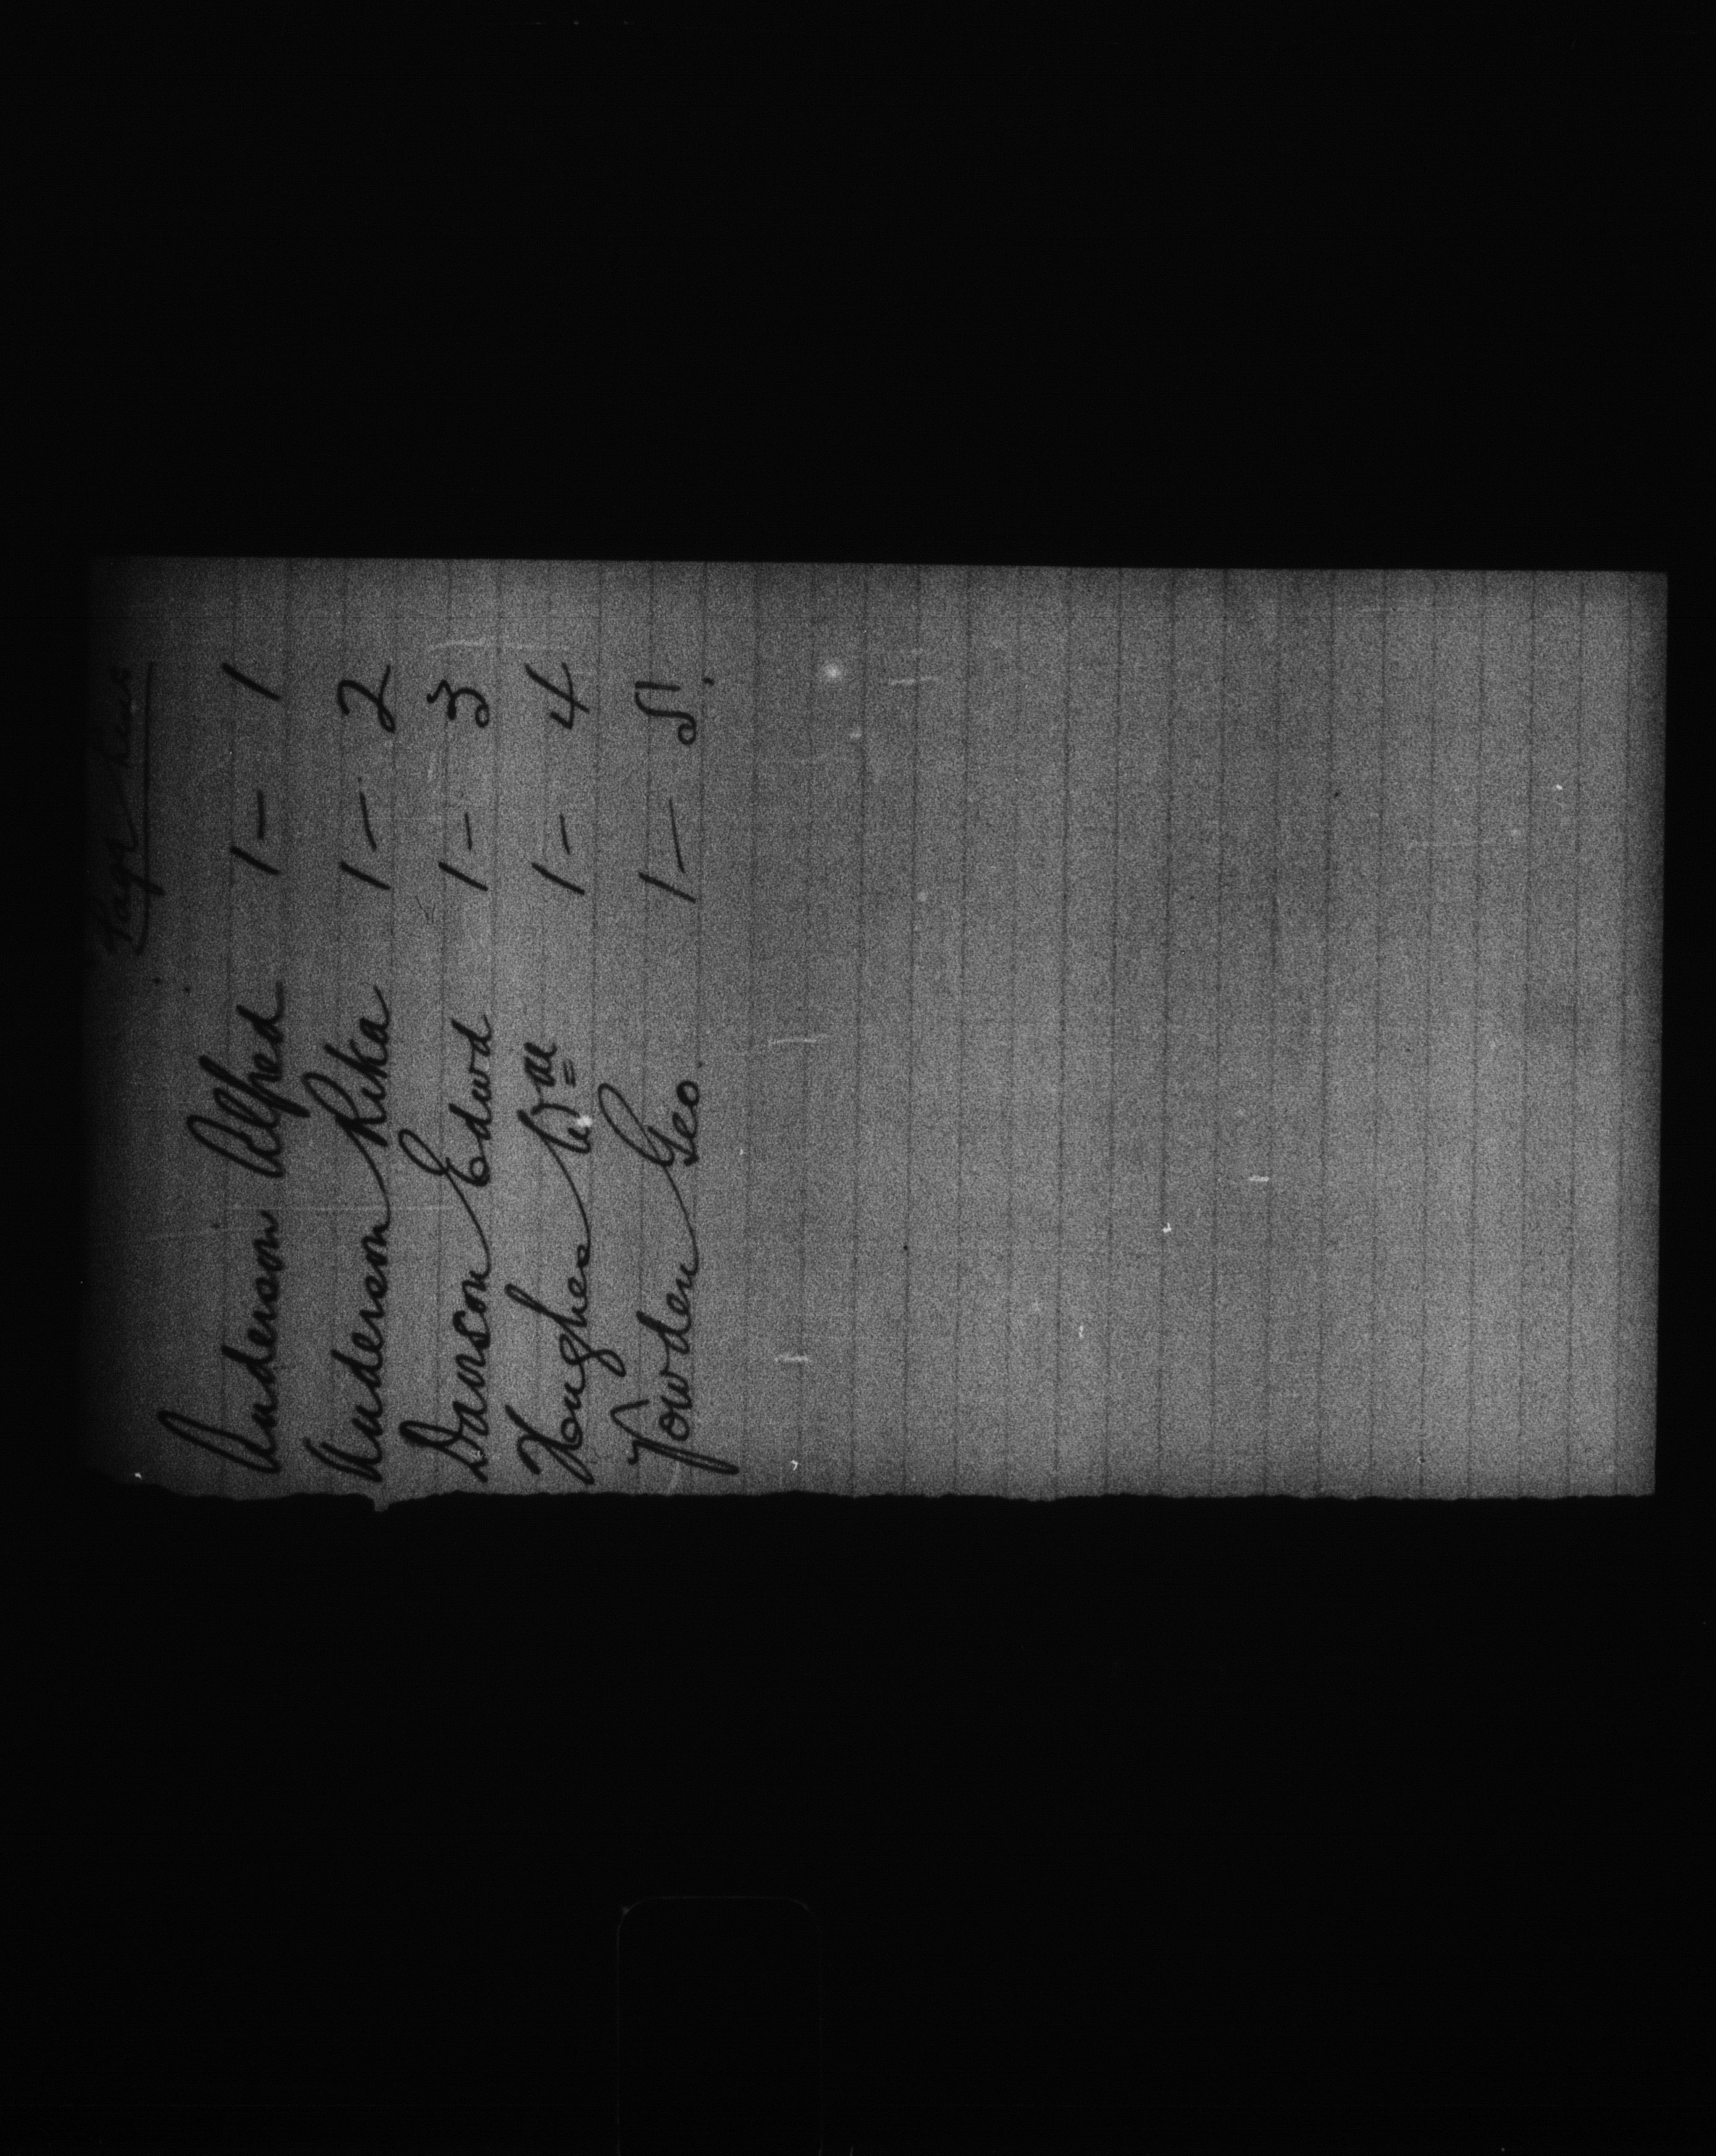 Page Line
Anderson Alfred 1 - 1
Anderson Rika 1 - 2
Davison Edwd 1 - 3
Hughes Wm 1 - 4
Towden Geo. 1 - 5.